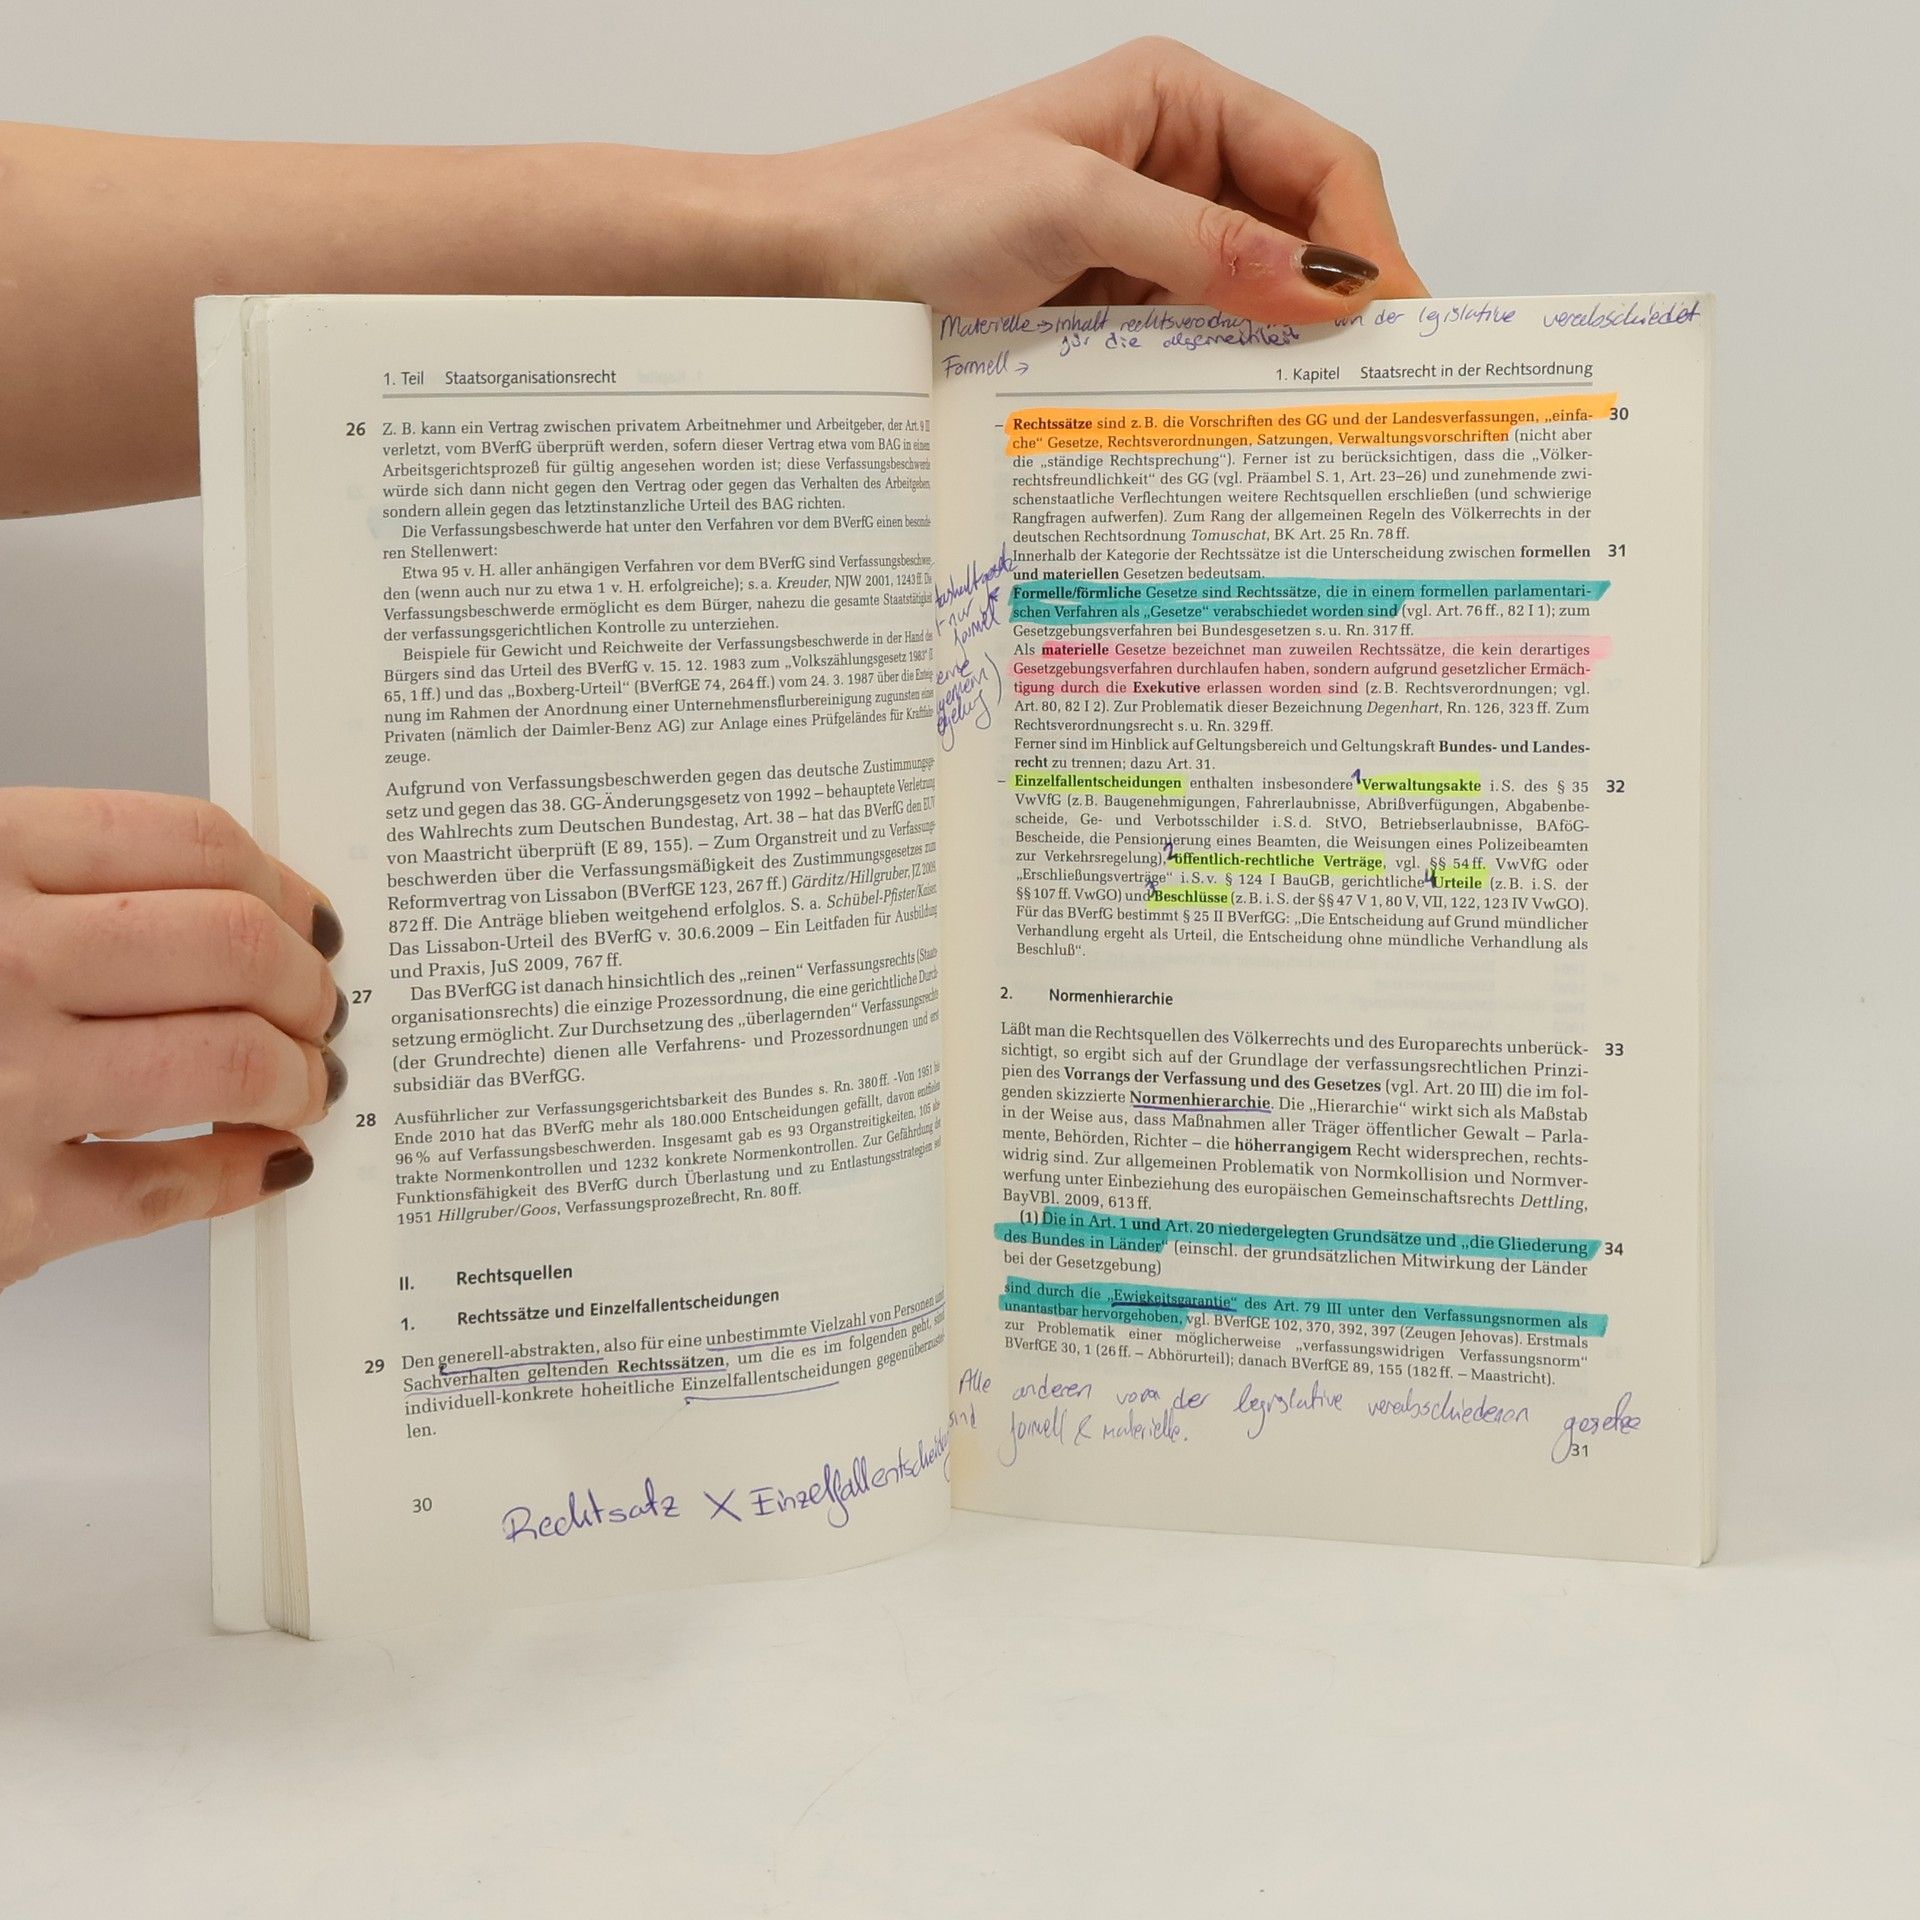 1. Teil Staatsorganisationsrecht
26 Z. B. kann ein Vertrag zwischen privatem Arbeitnehmer und Arbeitgeber, der Art. 9 II
verletzt, vom BVerfG überprüft werden, sofern dieser Vertrag etwa vom BAG in einem
Arbeitsgerichtsprozeß für gültig angesehen worden ist; diese Verfassungsbeschwerde
würde sich dann nicht gegen den Vertrag oder gegen das Verhalten des Arbeitgebers,
sondern allein gegen das letztinstanzliche Urteil des BAG richten.
Die Verfassungsbeschwerde hat unter den Verfahren vor dem BVerfG einen besonde-
ren Stellenwert:
Etwa 95 v. H. aller anhängigen Verfahren vor dem BVerfG sind Verfassungsbeschwer-
den (wenn auch nur zu etwa 1 v. H. erfolgreiche); s. a. Kreuder, NJW 2001, 1243 ff. Die
Verfassungsbeschwerde ermöglicht es dem Bürger, nahezu die gesamte Staatstätigkeit
der verfassungsgerichtlichen Kontrolle zu unterziehen.
Beispiele für Gewicht und Reichweite der Verfassungsbeschwerde in der Hand des
Bürgers sind das Urteil des BVerfG v. 15. 12. 1983 zum „Volkszählungsgesetz 1983“
65, 1 ff.) und das „Boxberg-Urteil“ (BVerfGE 74, 264 ff.) vom 24. 3. 1987 über die Enteig-
nung im Rahmen der Anordnung einer Unternehmensflurbereinigung zugunsten eines
Privaten (nämlich der Daimler-Benz AG) zur Anlage eines Prüfgeländes für Kraftfahr-
zeuge.
Aufgrund von Verfassungsbeschwerden gegen das deutsche Zustimmungsge-
setz und gegen das 38. GG-Änderungsgesetz von 1992 – behauptete Verletzung
des Wahlrechts zum Deutschen Bundestag, Art. 38 – hat das BVerfG den EUV
von Maastricht überprüft (E 89, 155). – Zum Organstreit und zu Verfassungs-
beschwerden über die Verfassungsmäßigkeit des Zustimmungsgesetzes zum
Reformvertrag von Lissabon (BVerfGE 123, 267 ff.) Gärditz/Hillgruber, JZ 2009,
872 ff. Die Anträge blieben weitgehend erfolglos. S. a. Schübel-Pfister/Kaiser,
Das Lissabon-Urteil des BVerfG v. 30.6.2009 – Ein Leitfaden für Ausbildung
und Praxis, JuS 2009, 767 ff.
27 Das BVerfGG ist danach hinsichtlich des „reinen“ Verfassungsrechts (Staats-
organisationsrechts) die einzige Prozessordnung, die eine gerichtliche Durch-
setzung ermöglicht. Zur Durchsetzung des „überlagernden“ Verfassungsrechts
(der Grundrechte) dienen alle Verfahrens- und Prozessordnungen und erst
subsidiär das BVerfGG.
28 Ausführlicher zur Verfassungsgerichtsbarkeit des Bundes s. Rn. 380 ff. -Von 1951 bis
Ende 2010 hat das BVerfG mehr als 180.000 Entscheidungen gefällt, davon entfielen
96 % auf Verfassungsbeschwerden. Insgesamt gab es 93 Organstreitigkeiten, 105 abs-
trakte Normenkontrollen und 1232 konkrete Normenkontrollen. Zur Gefährdung der
Funktionsfähigkeit des BVerfG durch Überlastung und zu Entlastungsstrategien seit
1951 Hillgruber/Goos, Verfassungsprozeßrecht, Rn. 80 ff.
II. Rechtsquellen
1. Rechtssätze und Einzelfallentscheidungen
29 Den generell-abstrakten, also für eine unbestimmte Vielzahl von Personen und
Sachverhalten geltenden Rechtssätzen, um die es im folgenden geht, sind
individuell-konkrete hoheitliche Einzelfallentscheidungen gegenüberzustel-
len.
30
Rechtsatz X Einzelfallentscheidung
Materielle → Inhalt von der legislative verabschiedet
für die
Formell →
1. Kapitel Staatsrecht in der Rechtsordnung
– Rechtssätze sind z. B. die Vorschriften des GG und der Landesverfassungen, „einfa- 30
che“ Gesetze, Rechtsverordnungen, Satzungen, Verwaltungsvorschriften (nicht aber
die „ständige Rechtsprechung“). Ferner ist zu berücksichtigen, dass die „Völker-
rechtsfreundlichkeit“ des GG (vgl. Präambel S. 1, Art. 23–26) und zunehmende zwi-
schenstaatliche Verflechtungen weitere Rechtsquellen erschließen (und schwierige
Rangfragen aufwerfen). Zum Rang der allgemeinen Regeln des Völkerrechts in der
deutschen Rechtsordnung Tomuschat, BK Art. 25 Rn. 78 ff.
Innerhalb der Kategorie der Rechtssätze ist die Unterscheidung zwischen formellen 31
und materiellen Gesetzen bedeutsam.
Formelle/förmliche Gesetze sind Rechtssätze, die in einem formellen parlamentari-
schen Verfahren als „Gesetze“ verabschiedet worden sind (vgl. Art. 76 ff., 82 I 1); zum
Gesetzgebungsverfahren bei Bundesgesetzen s. u. Rn. 317 ff.
Als materielle Gesetze bezeichnet man zuweilen Rechtssätze, die kein derartiges
Gesetzgebungsverfahren durchlaufen haben, sondern aufgrund gesetzlicher Ermäch-
tigung durch die Exekutive erlassen worden sind (z. B. Rechtsverordnungen; vgl.
Art. 80, 82 I 2). Zur Problematik dieser Bezeichnung Degenhart, Rn. 126, 323 ff. Zum
Rechtsverordnungsrecht s. u. Rn. 329 ff.
Ferner sind im Hinblick auf Geltungsbereich und Geltungskraft Bundes- und Landes-
recht zu trennen; dazu Art. 31.
– Einzelfallentscheidungen enthalten insbesondere 1 Verwaltungsakte i. S. des § 35 32
VwVfG (z. B. Baugenehmigungen, Fahrerlaubnisse, Abrißverfügungen, Abgabenbe-
scheide, Ge- und Verbotsschilder i. S. d. StVO, Betriebserlaubnisse, BAföG-
Bescheide, die Pensionierung eines Beamten, die Weisungen eines Polizeibeamten
zur Verkehrsregelung), 2 öffentlich-rechtliche Verträge, vgl. §§ 54 ff. VwVfG oder
„Erschließungsverträge“ i. S. v. § 124 I BauGB, gerichtliche 4 Urteile (z. B. i. S. der
§§ 107 ff. VwGO) und 3 Beschlüsse (z. B. i. S. der §§ 47 V 1, 80 V, VII, 122, 123 IV VwGO).
Für das BVerfG bestimmt § 25 II BVerfGG: „Die Entscheidung auf Grund mündlicher
Verhandlung ergeht als Urteil, die Entscheidung ohne mündliche Verhandlung als
Beschluß“.
2. Normenhierarchie
Läßt man die Rechtsquellen des Völkerrechts und des Europarechts unberück- 33
sichtigt, so ergibt sich auf der Grundlage der verfassungsrechtlichen Prinzi-
pien des Vorrangs der Verfassung und des Gesetzes (vgl. Art. 20 III) die im fol-
genden skizzierte Normenhierarchie. Die „Hierarchie“ wirkt sich als Maßstab
in der Weise aus, dass Maßnahmen aller Träger öffentlicher Gewalt – Parla-
mente, Behörden, Richter – die höherrangigem Recht widersprechen, rechts-
widrig sind. Zur allgemeinen Problematik von Normkollision und Normver-
werfung unter Einbeziehung des europäischen Gemeinschaftsrechts Dettling,
BayVBl. 2009, 613 ff.
(1) Die in Art. 1 und Art. 20 niedergelegten Grundsätze und „die Gliederung 34
des Bundes in Länder“ (einschl. der grundsätzlichen Mitwirkung der Länder
bei der Gesetzgebung)
sind durch die „Ewigkeitsgarantie“ des Art. 79 III unter den Verfassungsnormen als
unantastbar hervorgehoben, vgl. BVerfGE 102, 370, 392, 397 (Zeugen Jehovas). Erstmals
zur Problematik einer möglicherweise „verfassungswidrigen Verfassungsnorm“
BVerfGE 30, 1 (26 ff. – Abhörurteil); danach BVerfGE 89, 155 (182 ff. – Maastricht).
Alle anderen von der legislative verabschiedeten gesetze
sind formell & materielle.
31